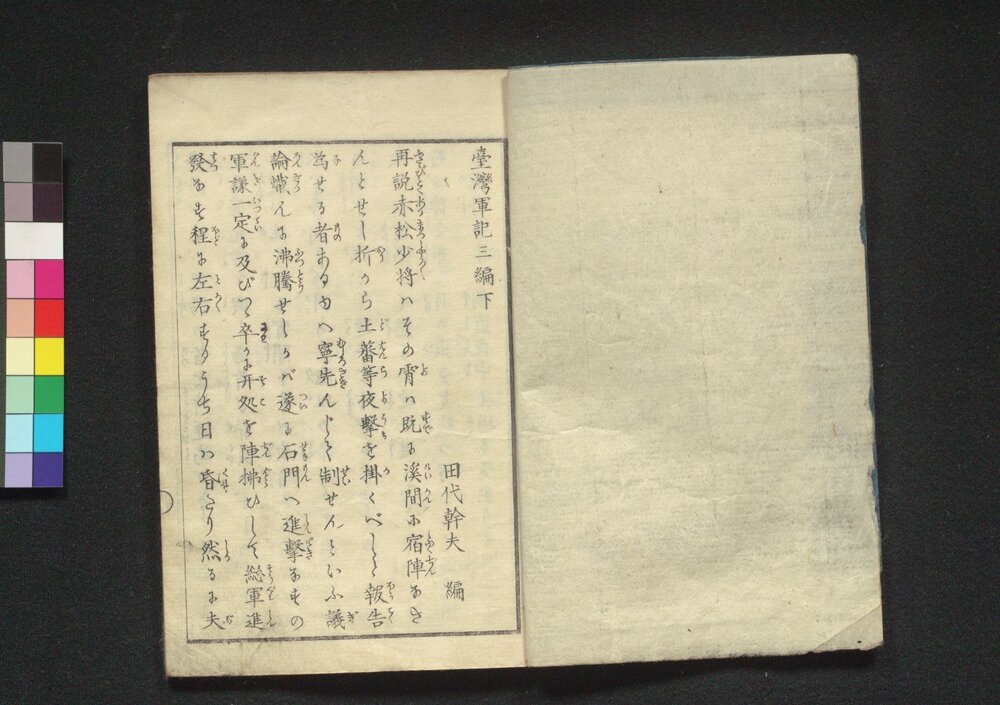 臺灣軍記三編下
田代幹夫 編
再説赤松少将ハその宵ハ既に溪間に宿陣なさ
んとせし折から土蕃等夜撃を掛くべしと報告
為せる者ある由へ寧先んじて制せんといふ議
論熾んに沸騰せしかバ遂に石門へ進撃なすの
軍議一定に及びつゝ卒かに其処を陣拂ひして総軍進
發なす程に左右するうち日ハ昏たり然るに夫